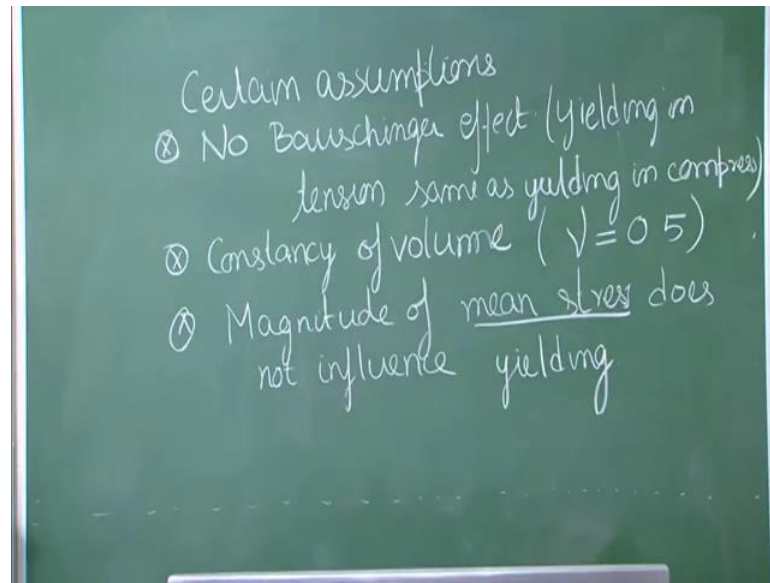 Certain assumptions
ⓧ No Bauschinger effect (yielding in
tension same as yielding in compress)
ⓧ Constancy of volume ( ν = 0 5 )
ⓧ Magnitude of mean stress does
not influence yielding